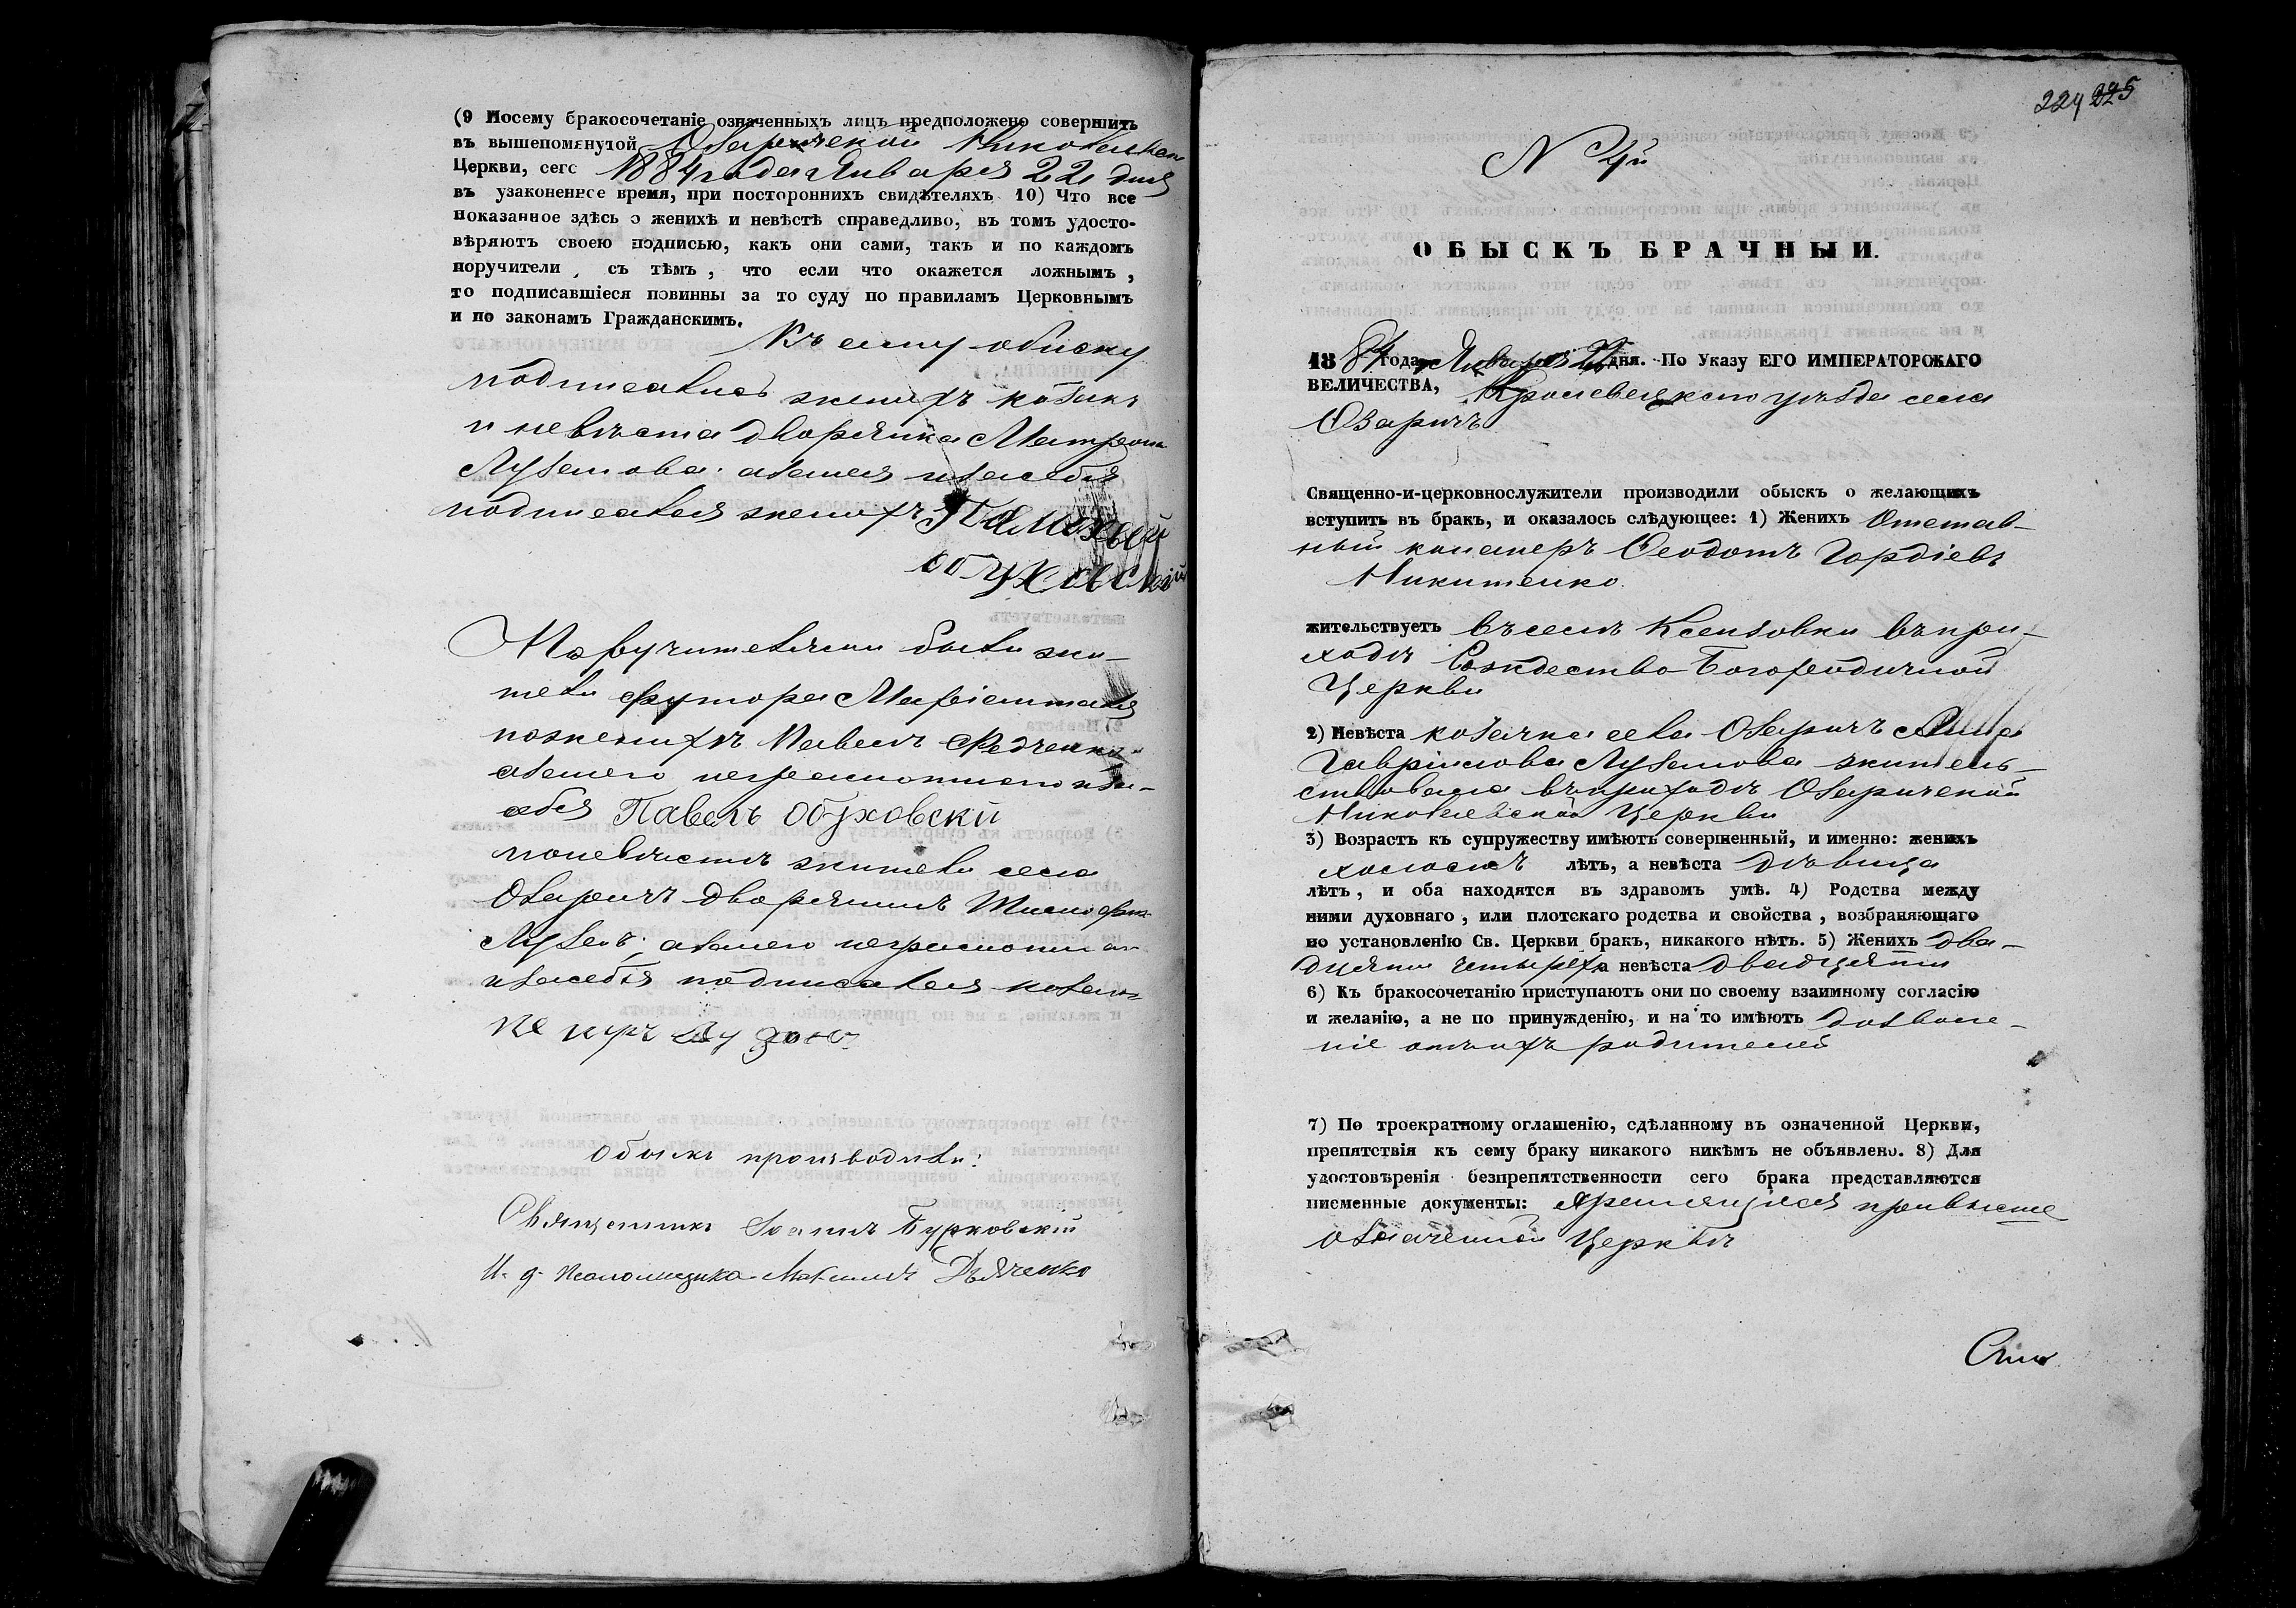 (9 Посему бракосочетаніе означенныхъ лицъ предположено совершить
въ вышепомянутой Озаричской Николаевской
Церкви, сего 1884 года Января 22 дня
въ узаконенное время, при постороннихъ свидѣтеляхъ 10) Что все
показанное здѣсь о женихѣ и невѣстѣ справедливо, въ томъ удосто-
вѣряютъ своею подписью, какъ они сами, такъ и по каждомъ
поручители, съ тѣмъ, что если что окажется ложнымъ,
то подписавшіеся повинны за то суду по правиламъ Церковнымъ
и по законамъ Гражданскимъ.
Къ сему обиску
подписались женихъ козакъ
и невѣста дворянка Матрона
Лузанова. а за нея и за себя
подписался женихъ
обуховскій
Поручителями были жи-
тели футора
по женихѣ Павелъ Федченко
а за него неграмотного и за
себя Павелъ Обуховскій
по невѣстѣ жители села
Озаричъ дворянинъ
Лузанъ; а за него неграмотнаго
и за себя подписался козакъ
Обыскъ производили:
Священникъ Іоаннъ Бурковскій
И. д. Псаломщика Дьяченко
224 225
N 4й
ОБЫСКЪ БРАЧНЫЙ.
1884 года Января 22 дня. По Указу ЕГО ИМПЕРАТОРСКАГО
ВЕЛИЧЕСТВА, Кролевецкого уѣзда села
Озаричъ
Священно-и-церковнослужители производили обыскъ о желающихъ
вступить въ бракъ, и оказалось слѣдующее: 1) Женихъ Отстав-
ный Феодотъ Гордіевъ
Никитенко
жительствуетъ въ селѣ Ксензовки въ при-
ходѣ Рождество Богородичной
Церкви
2) Невѣста козачка села Озаричъ Анна
Гавріилова Лузанова житель-
ствовала въ приходѣ Озаричской
Николаевской Церкви
3) Возрастъ къ супружеству имѣютъ совершенный, и именно: женихъ
холостъ лѣтъ, а невѣста дѣвица
лѣтъ, и оба находятся въ здравомъ умѣ. 4) Родства между
ними духовнаго, или плотскаго родства и свойства, возбраняющаго
по установленію Св. Церкви бракъ, никакого нѣтъ. 5) Женихъ два-
дцяти четырехъ а невѣста двадцяти
6) Къ бракосочетанію приступаютъ они по своему взаимному согласію
и желанію, а не по принужденію, и на то имѣютъ дозволе-
ніе отъ ихъ родителей
7) По троекратному оглашенію, сдѣланному въ означенной Церкви,
препятствія къ сему браку никакого никѣмъ не объявлено. 8) Для
удостовѣренія безпрепятственности сего брака представляются
писменные документы: хранящіеся при выше
означенной Церквѣ